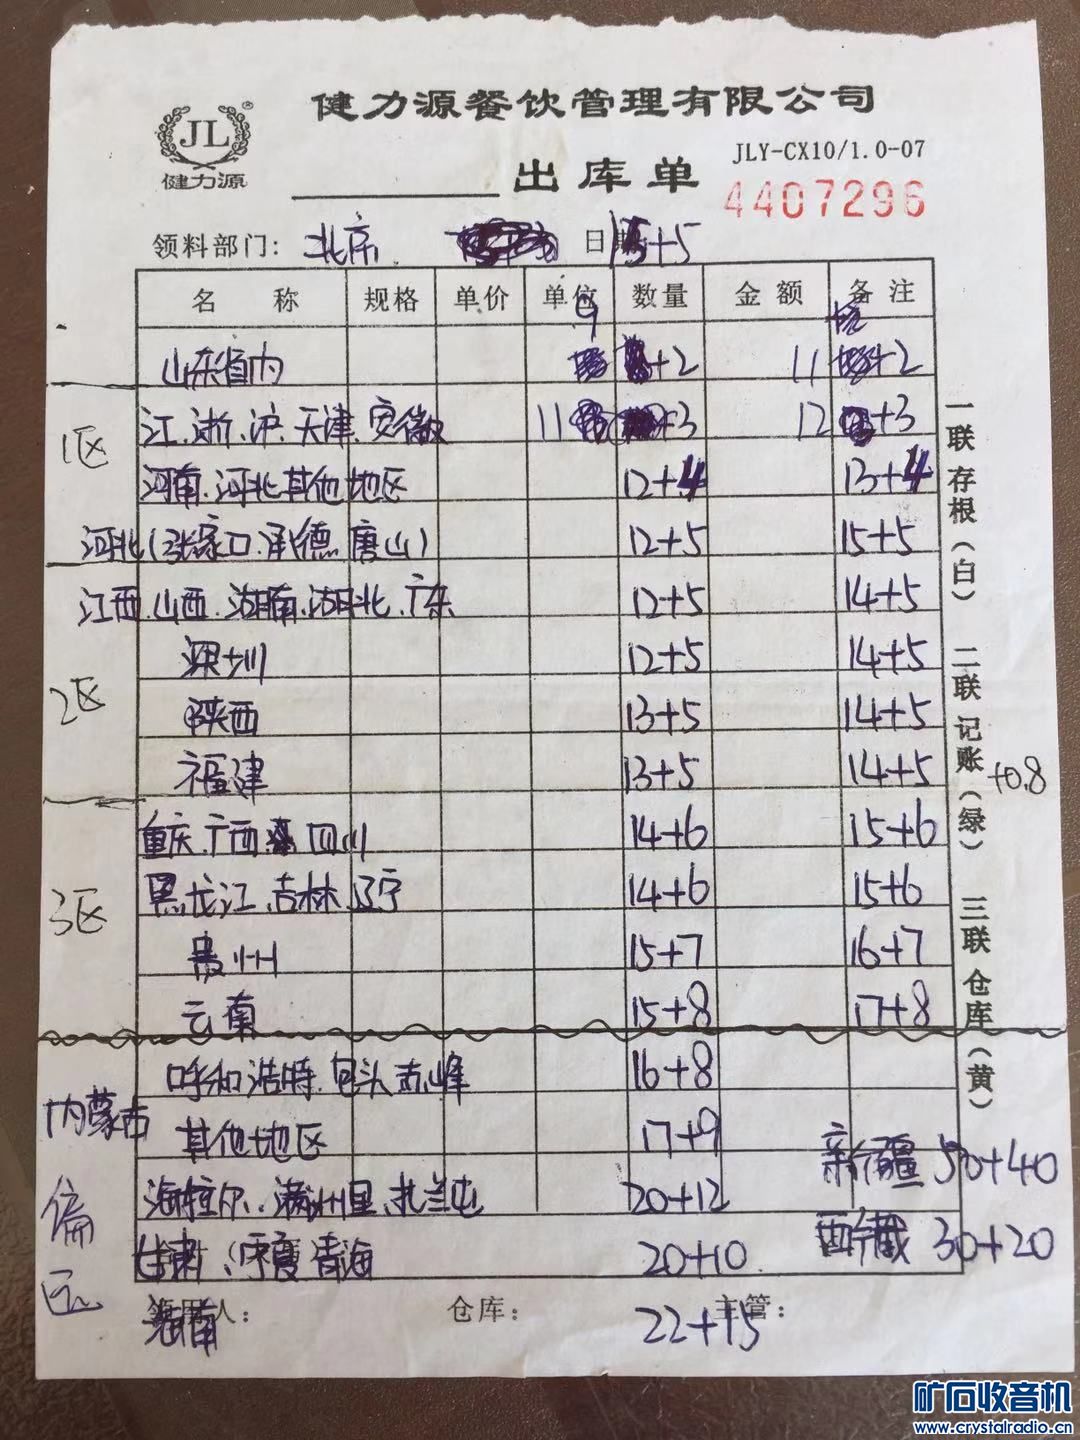 健力源餐饮管理有限公司
JL
®
健力源
出库单
JLY-CX10/1.0-07
4407296
领料部门: 北京 日 15+5
名 称 规格 单价 单位 数量 金额 备注
山东省内 9 +2 11 +2
1区
江.浙.沪.天津.安徽 11 +3 12 +3
河南.河北其他地区 12+4 13+4
河北(张家口.承德.唐山) 12+5 15+5
2区
江西.山西.湖南.湖北.广东 12+5 14+5
深圳 12+5 14+5
陕西 13+5 14+5
福建 13+5 14+5
+0.8
3区
重庆.广西.四川 14+6 15+6
黑龙江.吉林.辽宁 14+6 15+6
贵州 15+7 16+7
云南 15+8 17+8
内蒙古
呼和浩特.包头.赤峰 16+8
其他地区 17+9
海拉尔.满洲里.扎兰屯 20+12
新疆 50+40
偏区
甘肃.宁夏.青海 20+10
西藏 30+20
海南 22+15
领用人: 仓库: 主管:
一联存根(白) 二联记账(绿) 三联仓库(黄)
矿石收音机
www.crystalradio.cn